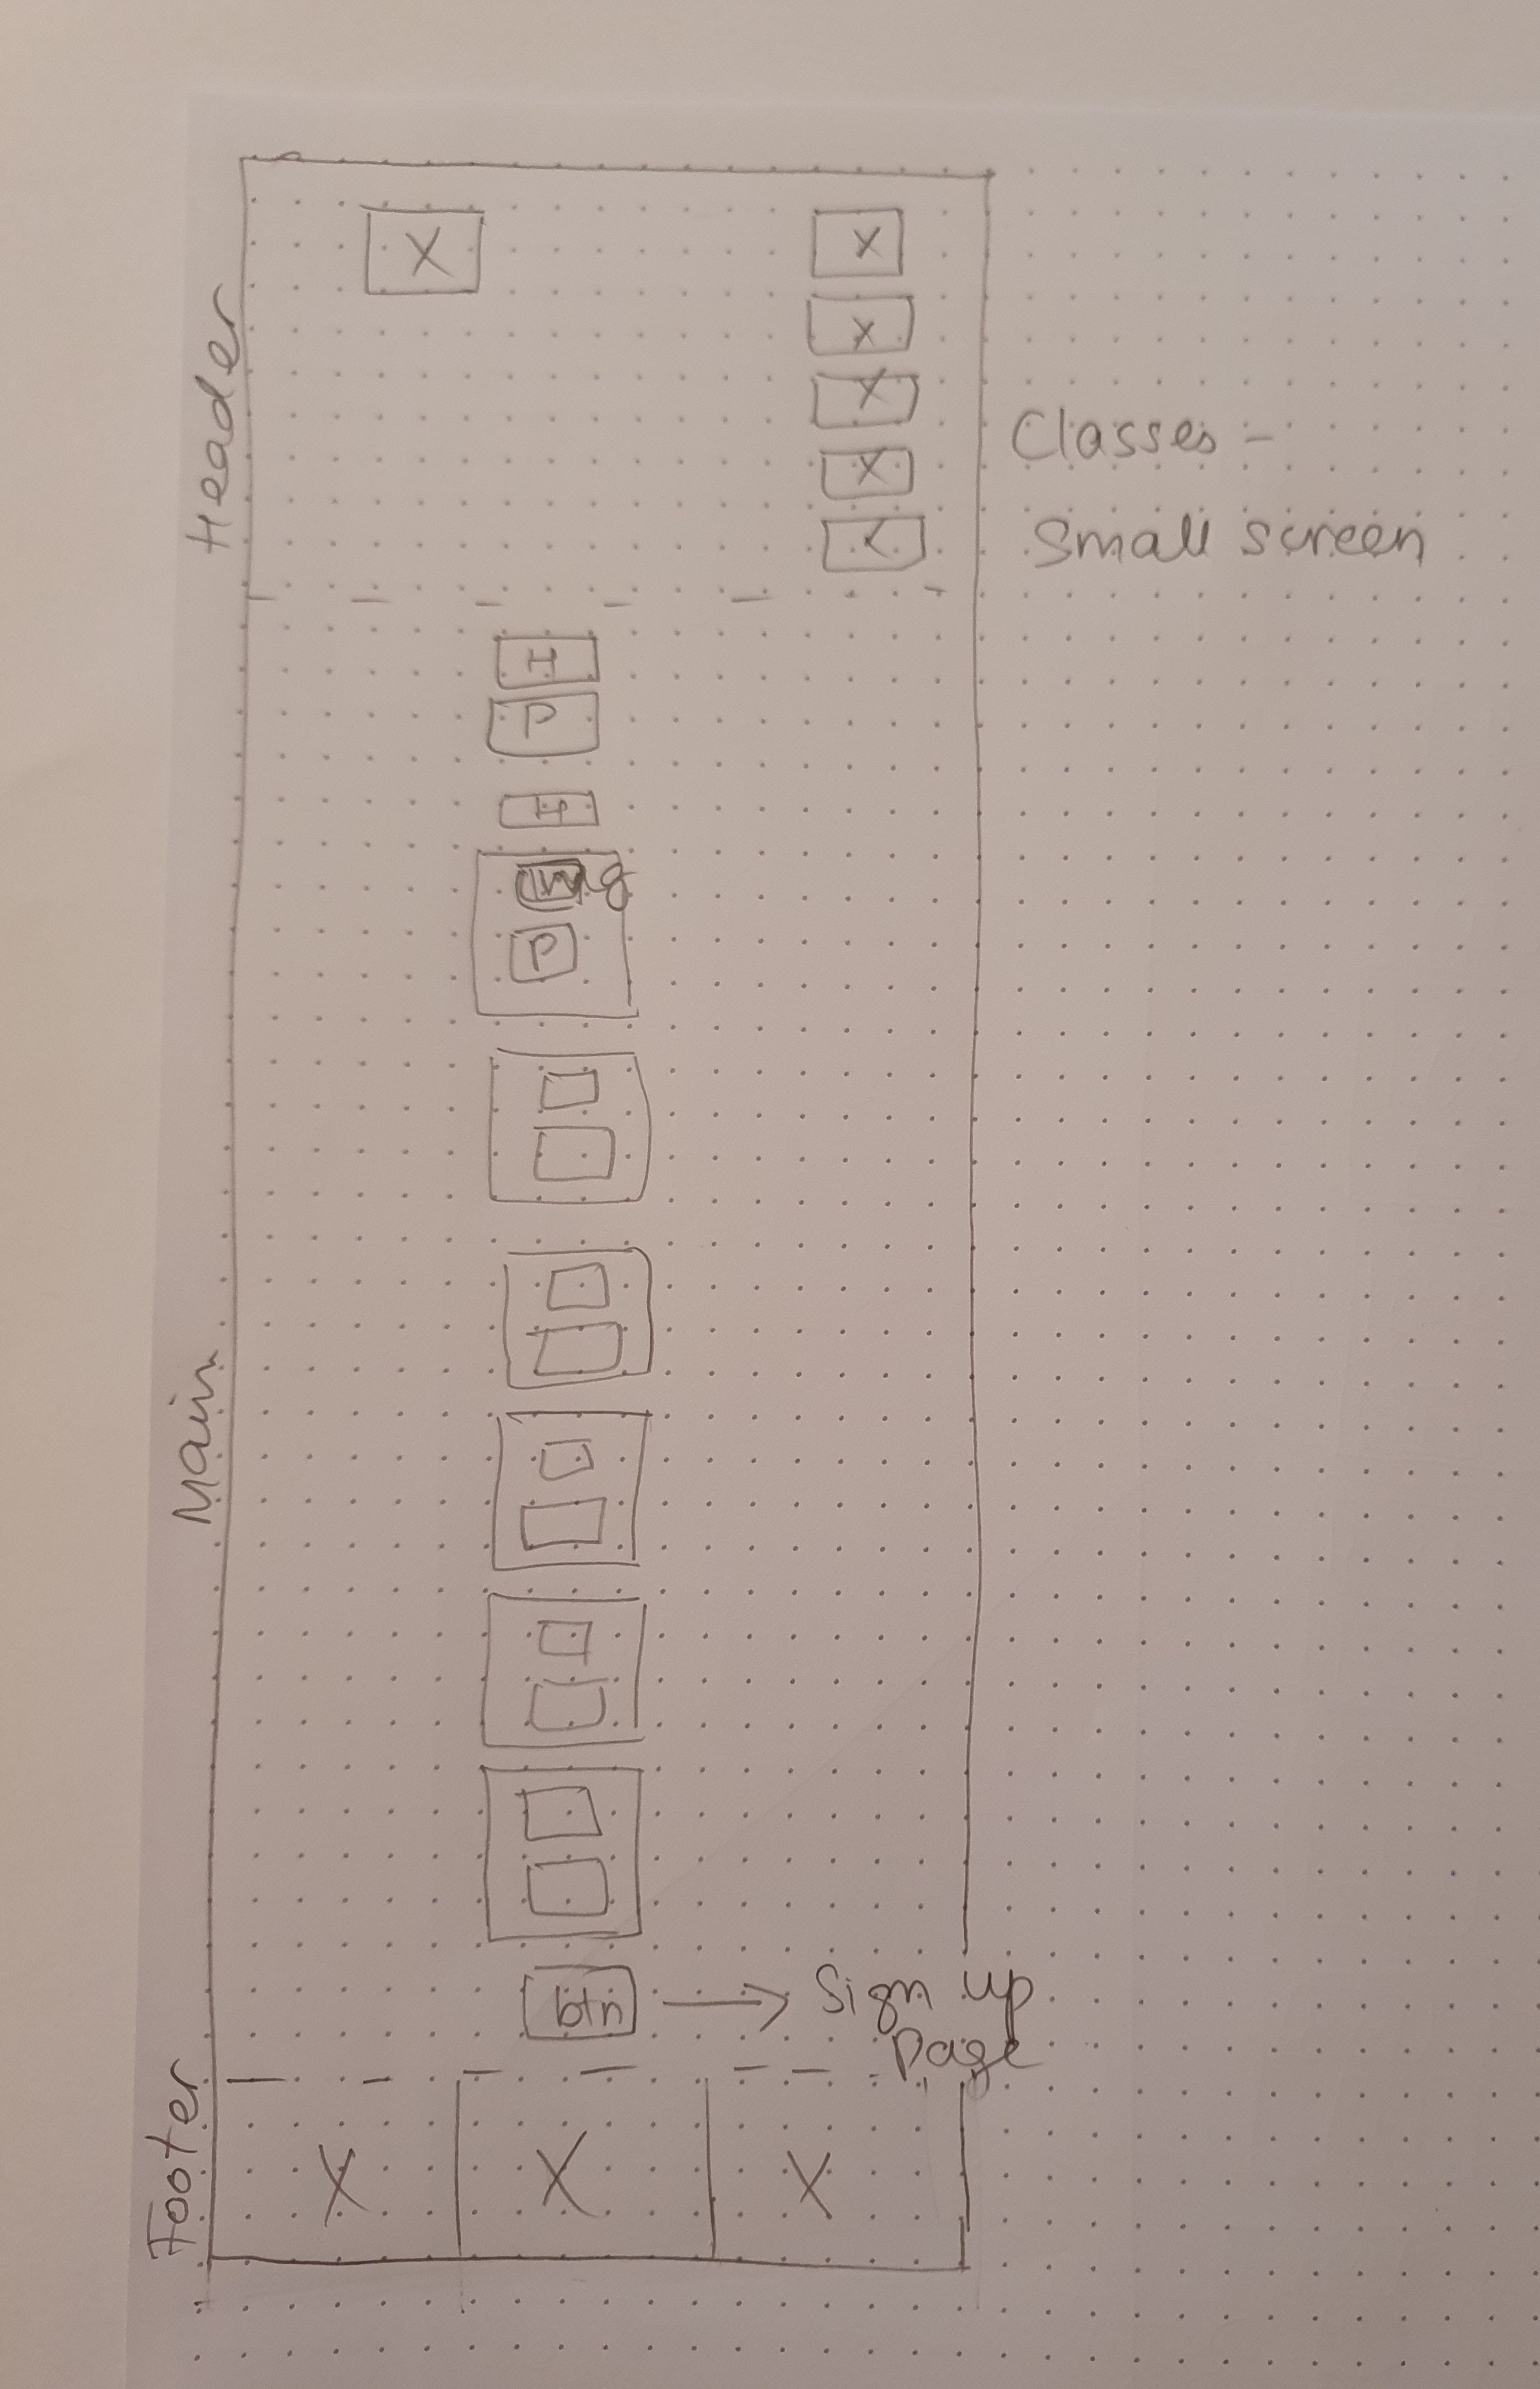 Header
X
X
X
X
X
X
Classes -
Small screen
H
P
H
Img
P
Main
btn → Sign up
Page
Footer
X X X